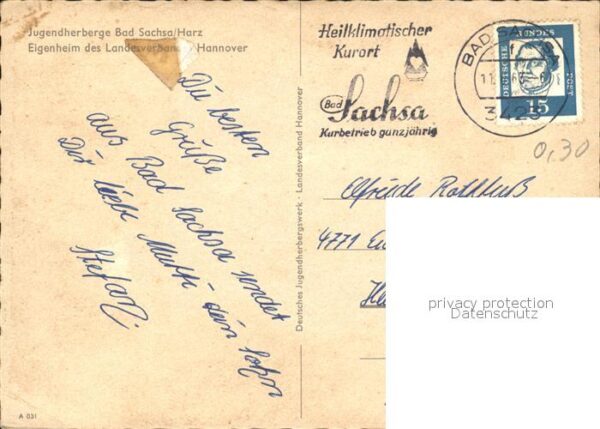 Jugendherberge Bad Sachsa/Harz
Eigenheim des Landesverban Hannover
Die besten
Grüße
aus Bad Sachsa sendet
Dir lieb Mutti dein Sohn
Stefan.
A 031
Deutsches Jugendherbergswerk · Landesverband Hannover
Heilklimatischer
Kurort
Bad
Sachsa
Kurbetrieb ganzjährig
BAD SA
3423
DEUTSCHE BUNDESPOST
15
0,30
Elfriede
4771
privacy protection
Datenschutz